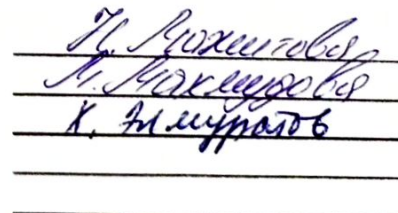 Н. Мажитовa
М. Махмудова
Х. Элмуратов